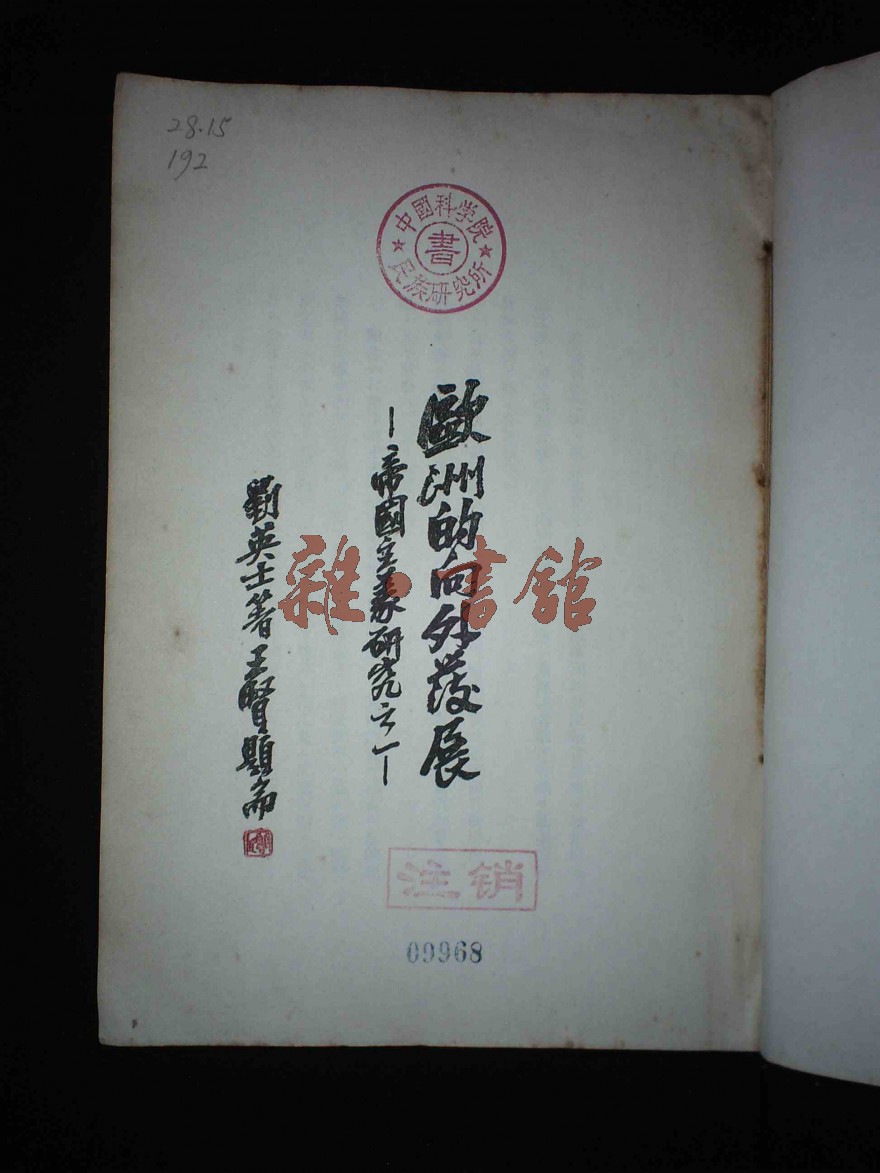 28.15
192
中國科学院
書
民族研究所
歐洲的向外發展
—帝國主義研究之一—
劉英士著 王賢題耑
雜·書館
注销
09968